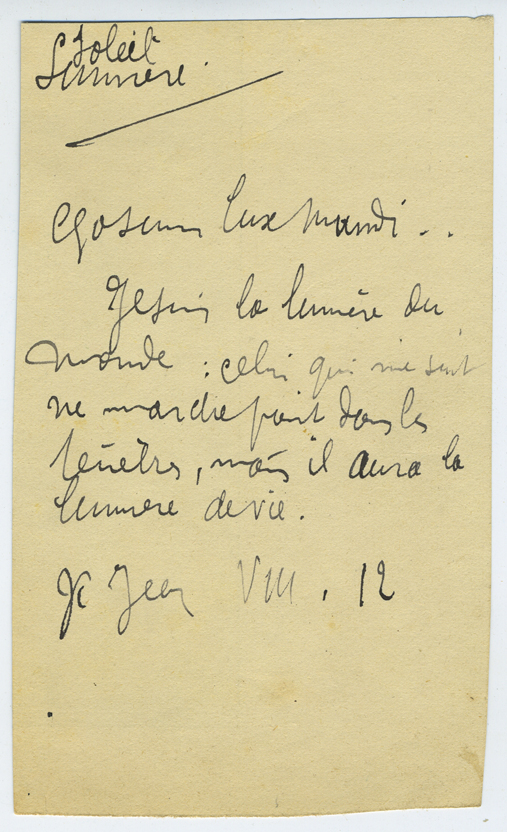 Soleil
Lumière.
Ego sum lux mundi . .
Je suis la lumière du
monde : celui qui me suit
ne marche point dans les
ténèbres, mais il aura la
lumière de vie.
Jean VIII . 12